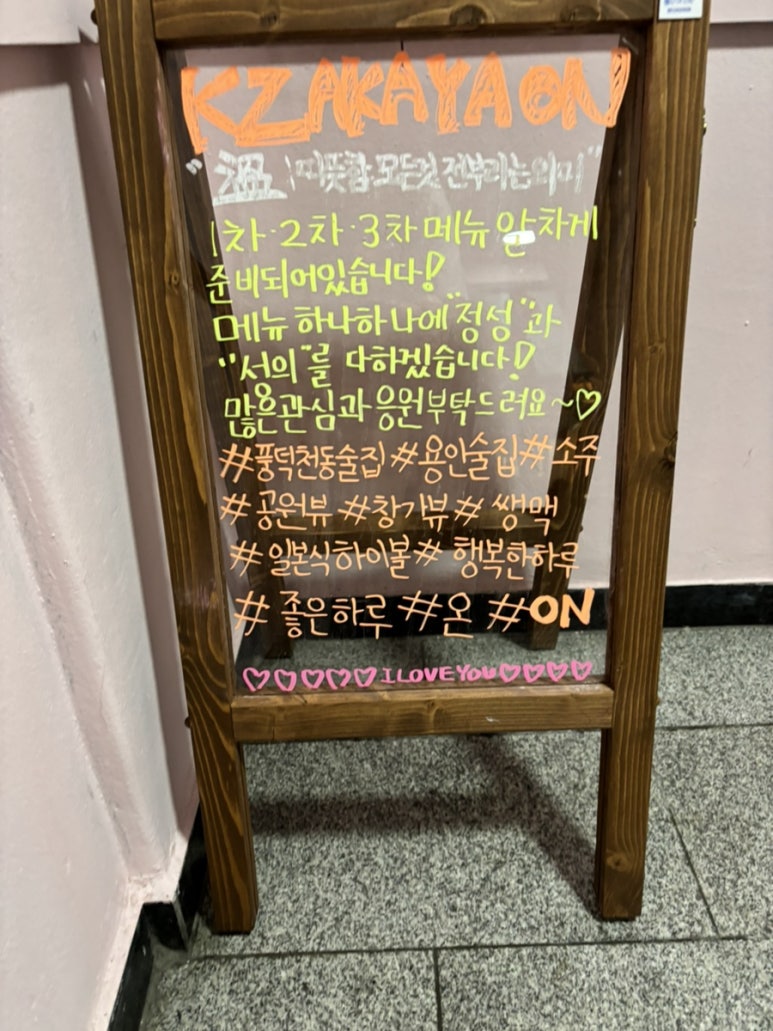 KZAKAYA ON
"温 | 따뜻함 모든것 전부라는의미"
1차·2차·3차 메뉴 알차게
준비되어있습니다!
메뉴 하나하나에 "정성"과
"성의"를 다하겠습니다!
많은관심과 응원부탁드려요~♡
#풍덕천동술집 #용인술집 #소주
#공원뷰 #창가뷰 # 쌩맥
#일본식하이볼 # 행복한하루
# 좋은하루 #온 #ON
♡♡♡♡♡ I LOVE YOU ♡♡♡♡